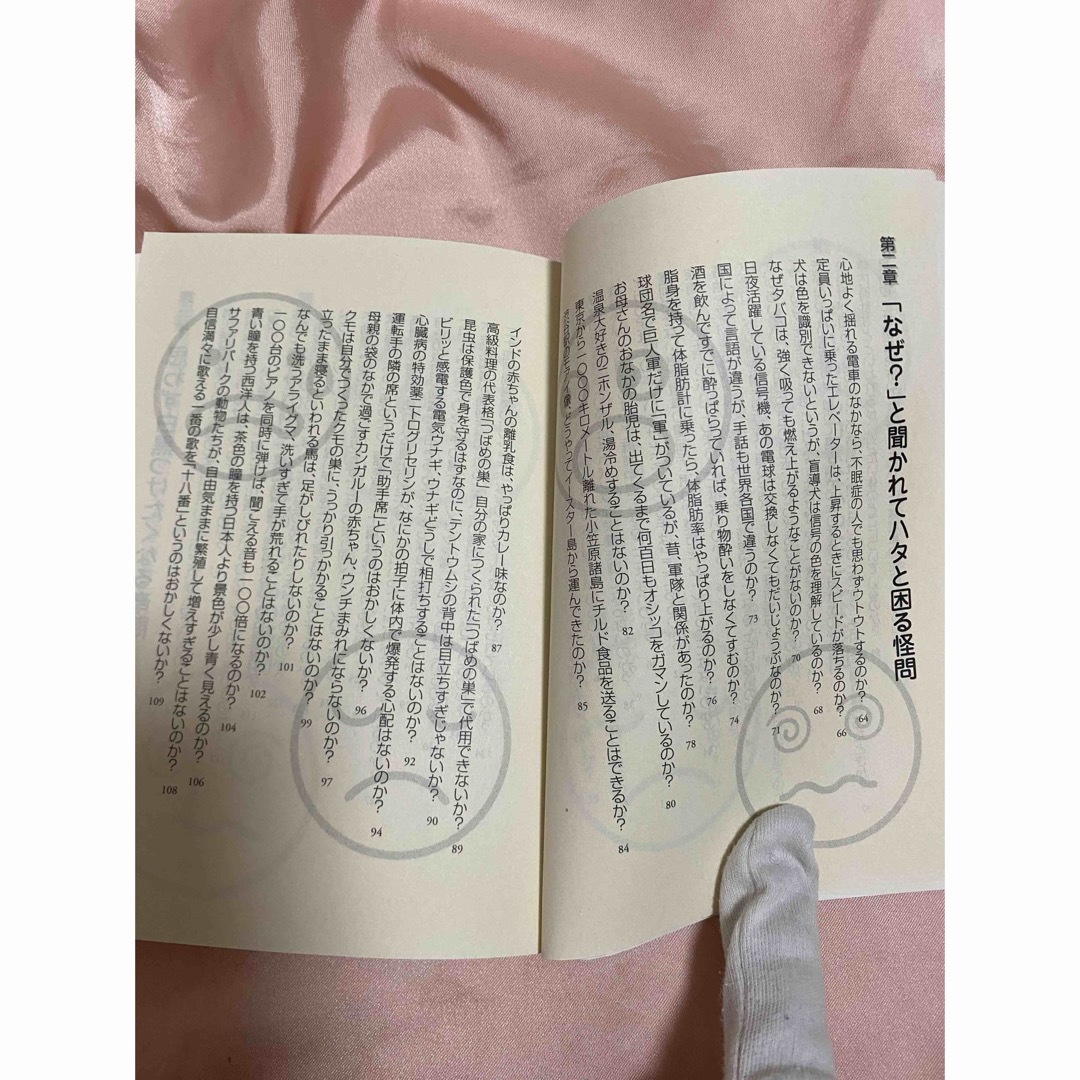 第二章 「なぜ?」と聞かれてハタと困る怪問
心地よく揺れる電車のなかなら、不眠症の人でも思わずウトウトするのか? 64
定員いっぱいに乗ったエレベーターは、上昇するときにスピードが落ちるのか? 66
犬は色を識別できないというが、盲導犬は信号の色を理解しているのか? 68
なぜタバコは、強く吸っても燃え上がるようなことがないのか? 70
日夜活躍している信号機、あの電球は交換しなくてもだいじょうぶなのか? 71
国によって言語が違うが、手話も世界各国で違うのか? 73
酒を飲んですでに酔っぱらっていれば、乗り物酔いをしなくてすむのか? 74
脂身を持って体脂肪計に乗ったら、体脂肪率はやっぱり上がるのか? 76
球団名で巨人軍だけに「軍」がついているが、昔、軍隊と関係があったのか? 78
お母さんのおなかの胎児は、出てくるまで何百日もオシッコをガマンしているのか? 80
温泉大好きのニホンザル、湯冷めすることはないのか? 82
東京から一〇〇〇キロメートル離れた小笠原諸島にチルド食品を送ることはできるか? 84
渋谷駅のモアイ像、どうやってイースター島から運んできたのか? 85
インドの赤ちゃんの離乳食は、やっぱりカレー味なのか? 87
高級料理の代表格「つばめの巣」自分の家につくられた「つばめの巣」で代用できないか? 89
昆虫は保護色で身を守るはずなのに、テントウムシの背中は目立ちすぎじゃないか? 90
ビリッと感電する電気ウナギ、ウナギどうしで相打ちすることはないのか? 92
心臓病の特効薬「ニトログリセリン」が、なにかの拍子に体内で爆発する心配はないのか? 94
運転手の隣の席というだけで「助手席」というのはおかしくないか? 96
母親の袋のなかで過ごすカンガルーの赤ちゃん、ウンチまみれにならないのか? 97
クモは自分でつくったクモの巣に、うっかり引っかかることはないのか? 99
立ったまま寝るといわれる馬は、足がしびれたりしないのか? 101
なんでも洗うアライグマ、洗いすぎて手が荒れることはないのか? 102
一〇〇台のピアノを同時に弾けば、聞こえる音も一〇〇倍になるのか? 104
青い瞳を持つ西洋人は、茶色の瞳を持つ日本人より景色が少し青く見えるのか? 106
サファリパークの動物たちが、自由気ままに繁殖して増えすぎることはないのか? 108
自信満々に歌える一番の歌を「十八番」というのはおかしくないか? 109